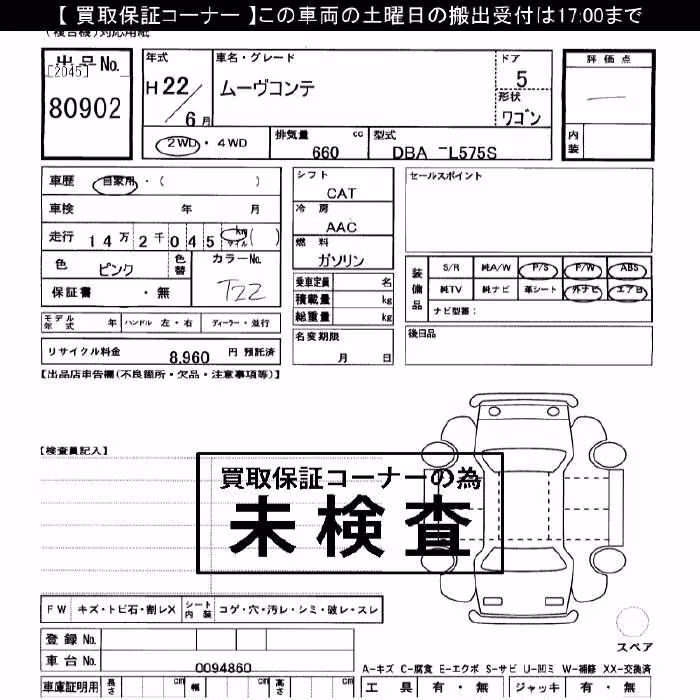 【 買取保証コーナー 】この車両の土曜日の搬出受付は17:00まで
(複合機)対応用紙
出品No.
[2045]
80902
年式
H 22／6月
車名・グレード
ムーヴコンテ
ドア
5
形状
ワゴン
評価点
―
内装
2WD ・ 4WD
排気量 cc
660
型式
DBA －L575S
車歴 自家用 ・( )
車検 年 月
走行 14万2千045 km マイル ( )
色 ピンク 色替
カラーNo.
T22
保証書 ・ 無
シフト
CAT
冷房
AAC
燃料
ガソリン
乗車定員 名
積載量 kg
総重量 kg
セールスポイント
装備品
S/R 純A/W P/S P/W ABS
純TV 純ナビ 革シート 外ナビ エアB
ナビ型番：
モデル年式 年 ハンドル 左・右 ディーラー・並行
リサイクル料金 8,960 円 預託済
名変期限
月 日
後日品
【出品店申告欄(不良箇所・欠品・注意事項等)】
【検査員記入】
買取保証コーナーの為
未検査
FW キズ・トビ石・割レX シート内装 コゲ・穴・汚レ・シミ・破レ・スレ
登録No.
車台No. 0094860
スペア
A-キズ C-腐食 E-エクボ S-サビ U-凹ミ W-補修 XX-交換済
車庫証明用 長さ cm 幅 cm 高さ cm
工具 有・無 ジャッキ 有・無